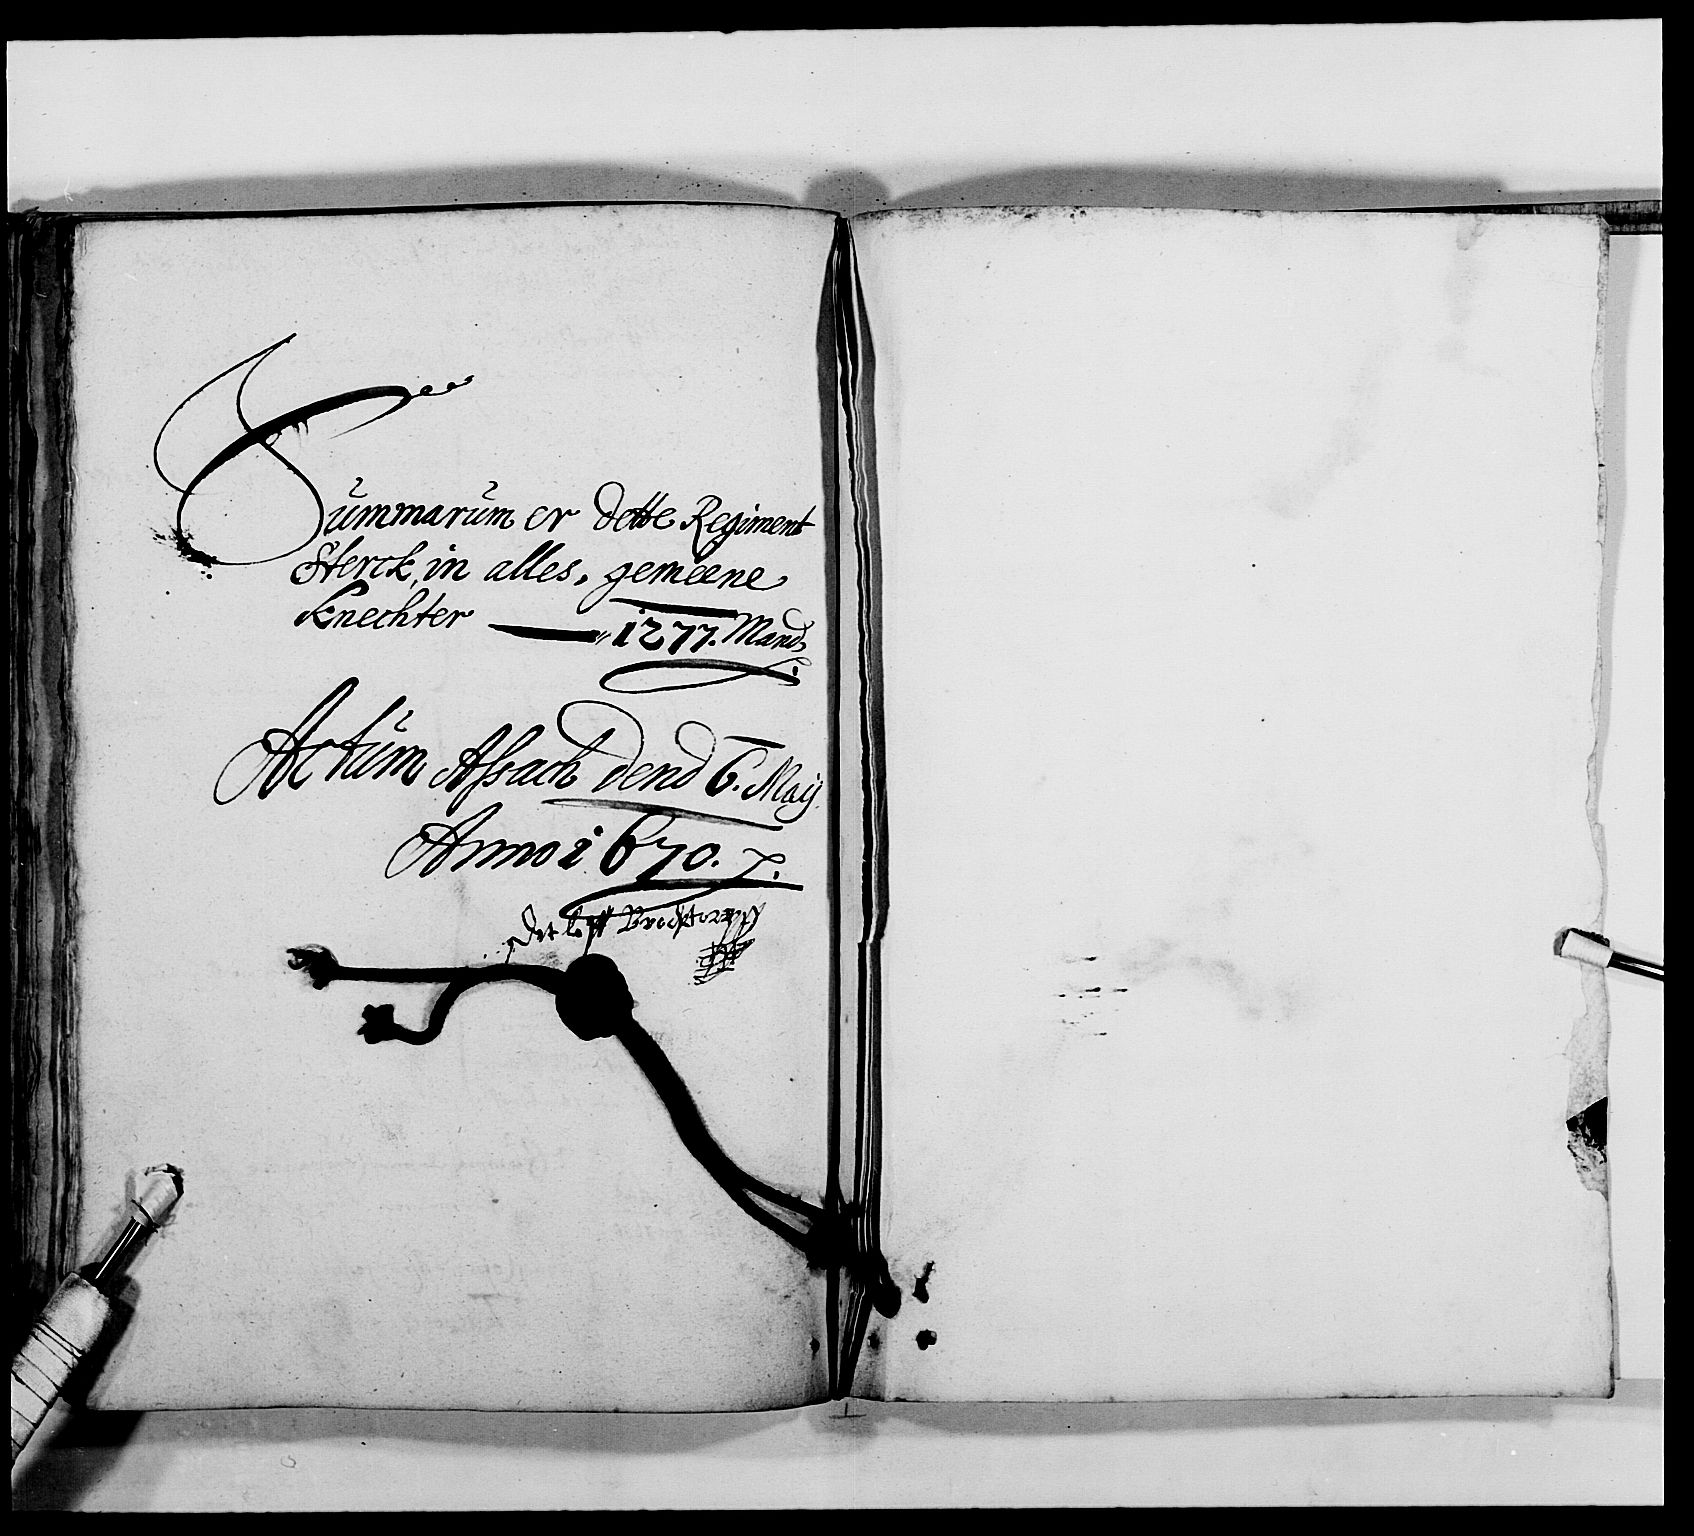 Summarum er dette Regiment
Sterck, in alles, gemeene
Knechter — 1277. Mand
Actum Assach dend 6. Maij
Anno 1670.
Detleff Brockstorpff